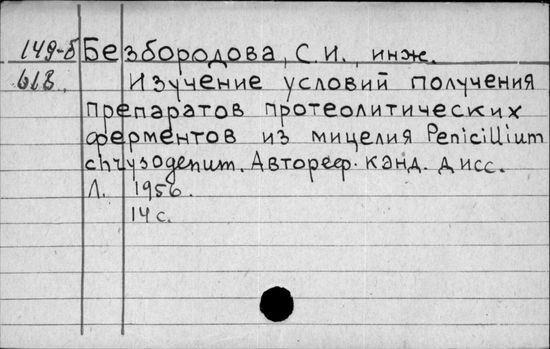 149-б Безбородова, С.И., инж.
618. Изучение условий получения
препаратов протеолитических
ферментов из мицелия Penicillium
chrysogenum. Автореф. канд. дисс.
Л. 1956.
14 с.